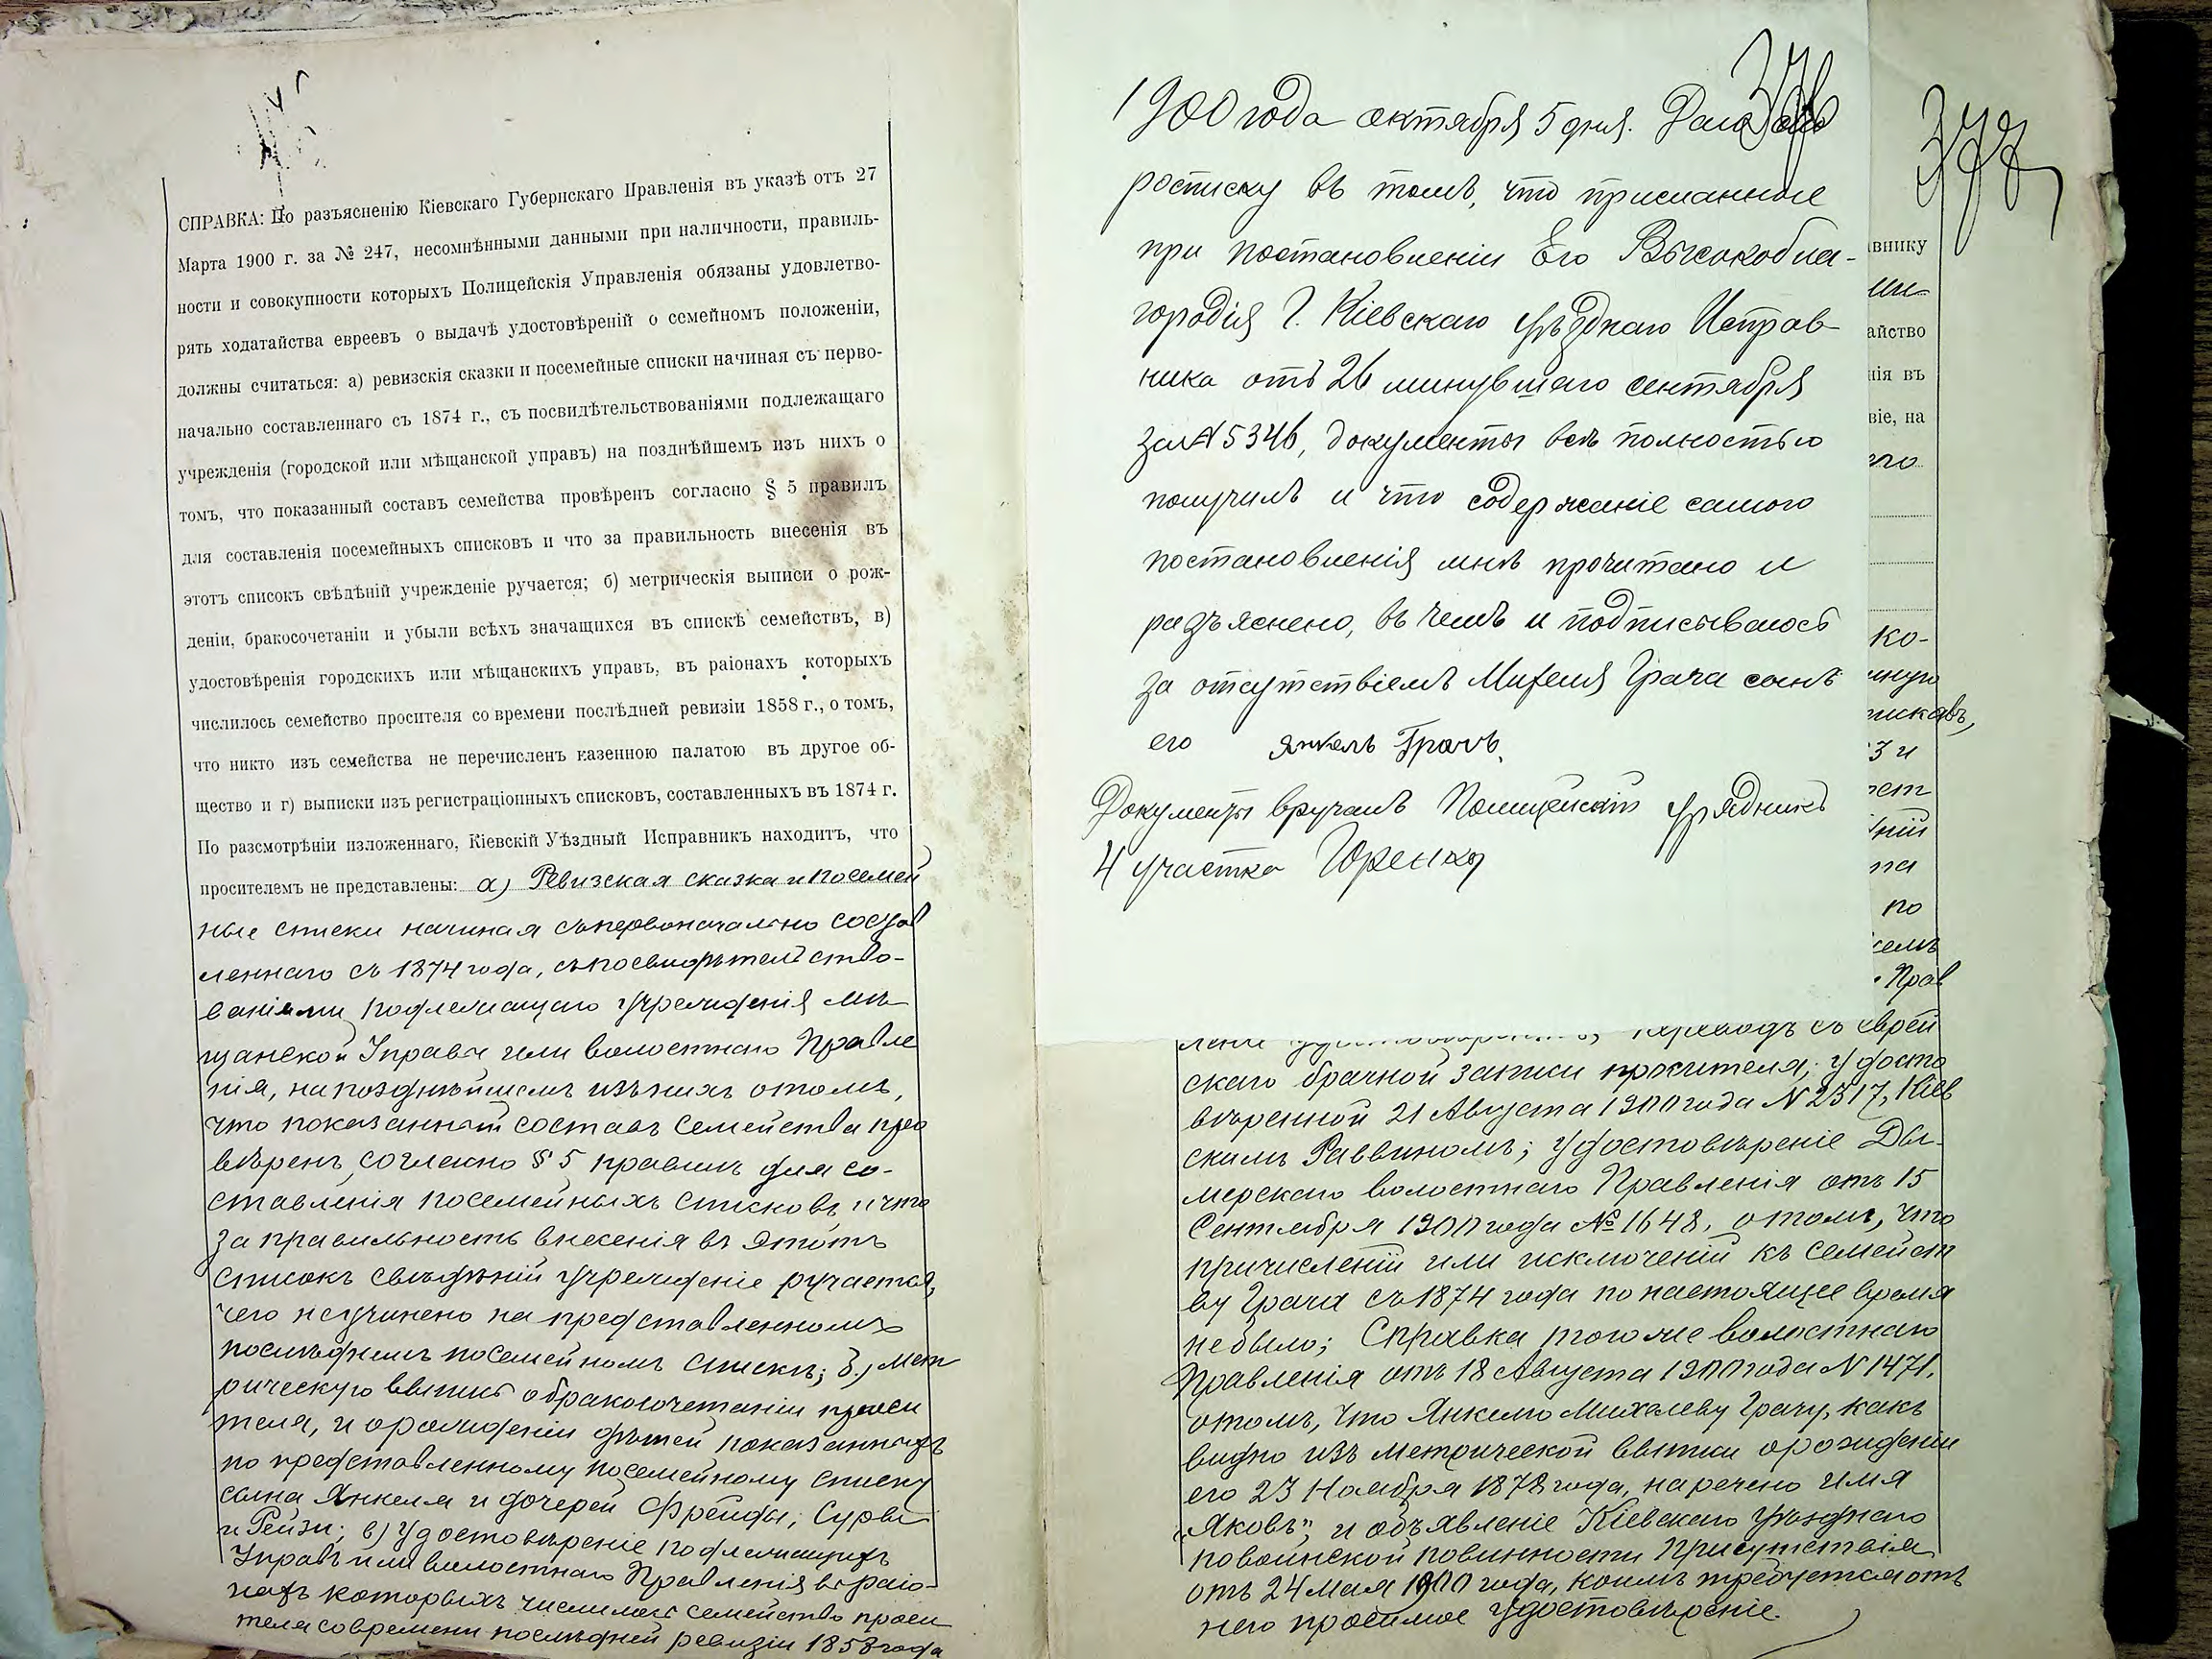 СПРАВКА: По разъясненію Кіевскаго Губернскаго Правленія въ указѣ отъ 27
Марта 1900 г. за № 247, несомнѣнными данными при наличности, правиль-
ности и совокупности которыхъ Полицейскія Управленія обязаны удовлетво-
рять ходатайства евреевъ о выдачѣ удостовѣреній о семейномъ положеніи,
должны считаться: а) ревизскія сказки и посемейные списки начиная съ перво-
начально составленнаго съ 1874 г., съ посвидѣтельствованіями подлежащаго
учрежденія (городской или мѣщанской управъ) на позднѣйшемъ изъ нихъ о
томъ, что показанный составъ семейства провѣренъ согласно § 5 правилъ
для составленія посемейныхъ списковъ и что за правильность внесенія въ
этотъ списокъ свѣдѣній учрежденіе ручается; б) метрическія выписи о рож-
деніи, бракосочетаніи и убыли всѣхъ значащихся въ спискѣ семействъ, в)
удостовѣренія городскихъ или мѣщанскихъ управъ, въ раіонахъ которыхъ
числилось семейство просителя со времени послѣдней ревизіи 1858 г., о томъ,
что никто изъ семейства не перечисленъ казенною палатою въ другое об-
щество и г) выписки изъ регистраціонныхъ списковъ, составленныхъ въ 1874 г.
По разсмотрѣніи изложеннаго, Кіевскій Уѣздный Исправникъ находитъ, что
просителемъ не представлены: а) Ревизская сказка и посемей
ные списки начиная съ первоначально состав
леннаго съ 1874 года, съ посвидѣтельство-
ваніями подлежащаго учрежденія мѣ-
щанской Управы или волостнаго Правле
нія, на позднѣйшемъ изъ нихъ о томъ,
что показанный составъ семейства про
вѣренъ согласно § 5 правилъ для со-
ставленія посемейныхъ списковъ и что
за правильность внесенія въ этотъ
списокъ свѣдѣній учрежденіе ручается,
чего неучинено на представленномъ
послѣднемъ посемейномъ спискѣ; б) мет
рическую выпись о бракосочетаніи проси
теля, и о рожденіи дѣтей показанныхъ
по представленному посемейному списку
сына Янкеля и дочерей Фрейды, Суры
и Рейзи; в) Удостовѣреніе подлежащихъ
Управъ или волостнаго Правленія въ раіо-
нахъ которыхъ числилось семейство проси
теля со времени послѣдней ревизіи 1858 года
376
1900 года октября 5 дня. Дана
росписку въ томъ, что присланные
при постановленіи Его Высокобла-
городія Г. Кіевскаго Уѣзднаго Исправ-
ника отъ 26 минувшаго сентября
за № 5346, документы всѣ полностью
получилъ и что содержаніе самого
постановленія мнѣ прочитано и
разъяснено, въ чемъ и подписываюсь
за отсутствіемъ Михеля Грача сынъ
его Янкель Грачъ.
Документы вручалъ Полицейскій урядникъ
4 участка
377
внику
айство
нія въ
віе, на
его
ко-
3 и
по
Прав
переводъ съ еврей
скаго брачной записи просителя, удосто
вѣренной 21 Августа 1900 года № 2317, Кіев
скимъ Раввиномъ; удостовѣреніе Ды-
мерскаго волостнаго Правленія отъ 15
Сентября 1900 года № 1648, о томъ, что
причисленій или исключеній къ семейст
ву Грача съ 1874 года по настоящее время
не было; Справка того же волостнаго
Правленія отъ 18 Августа 1900 года № 1471.
о томъ, что Янкелю Михелеву Грачу, какъ
видно изъ метрической выписи о рожденіи
его 23 Ноября 1878 года, наречено имя
„Яковъ“, и объявленіе Кіевскаго Уѣзднаго
по воинской повинности Присутствія
отъ 24 Мая 1900 года, коимъ требуется отъ
него просимое удостовѣреніе.